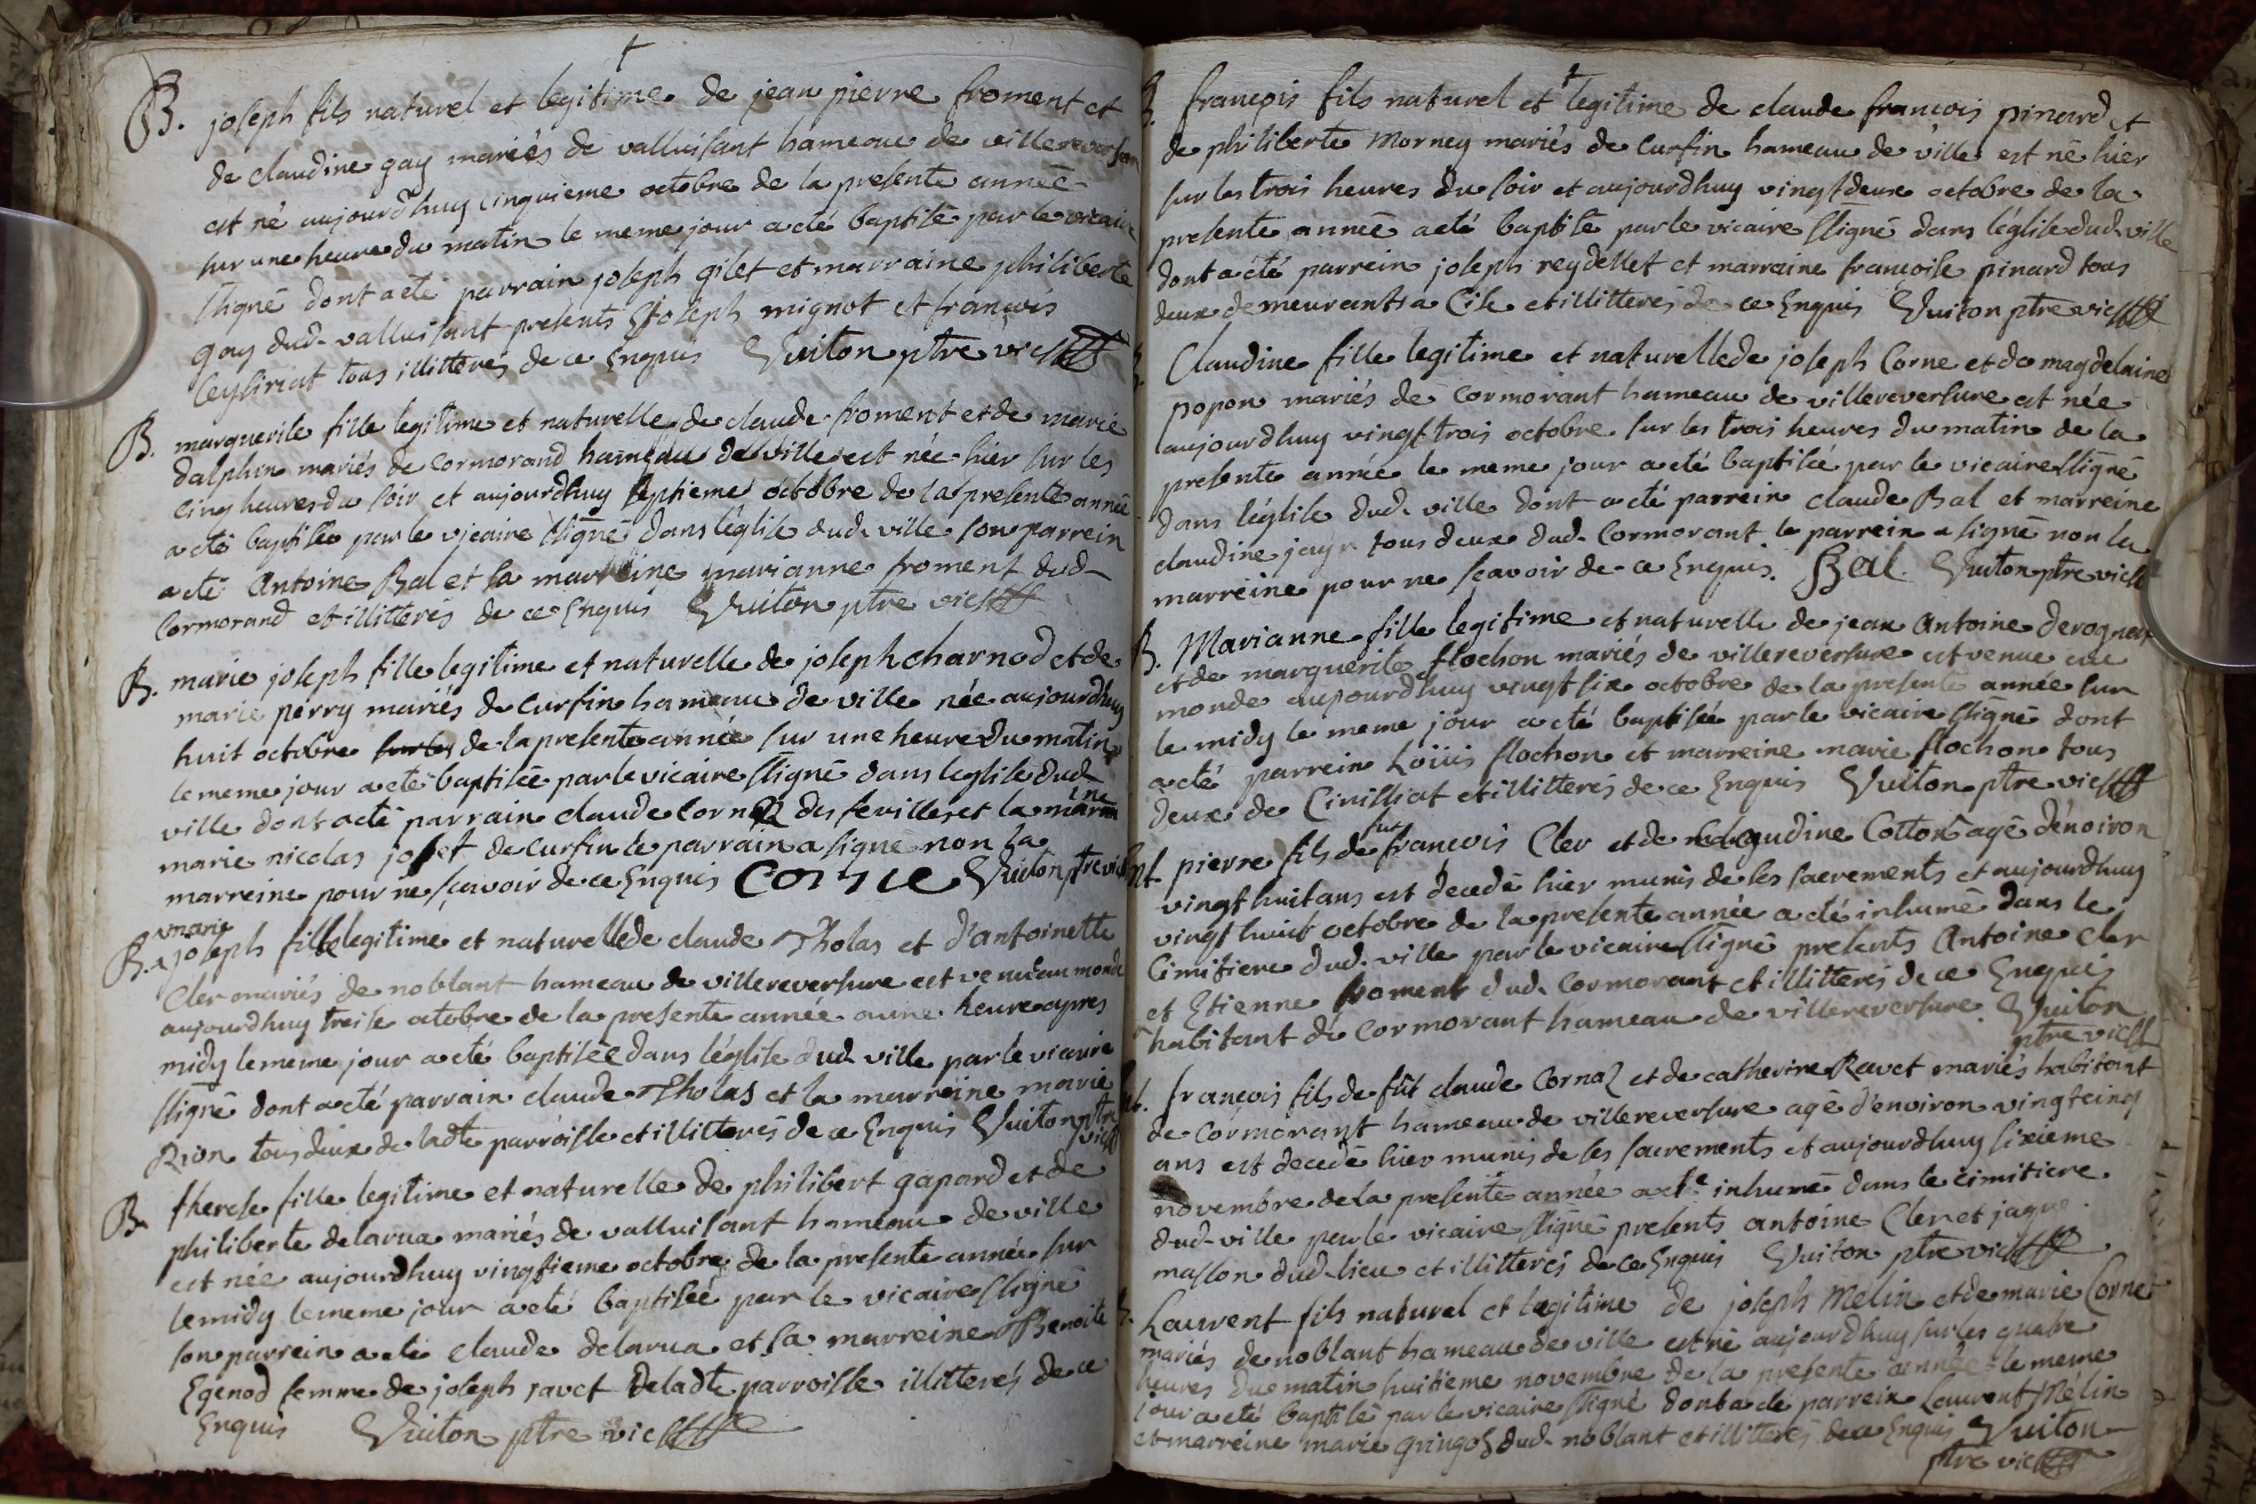 B. joseph fils naturel et legitime de jean pierre froment et
de claudine gay mariés de valluisant hameau de villereversure
est né aujourdhuy cinquieme octobre de la presente année
sur une heure du matin le meme jour a eté baptisé par le vicaire
ssigné dont a eté parrain joseph gilet et marraine philiberte
gay dud. valluisant presents joseph mignot et francois
Ceysiriat tous illitterés de ce Enquis Vuiton ptre vic
B. marguerite fille legitime et naturelle de claude froment et de marie
dalphin mariés de cormorand hameau de ville est née hier sur les
cinq heures du soir et aujourdhuy septieme octobre de la presente année
a eté baptisée par le vicaire ssigné dans leglise dud. ville son parrein
a eté Antoine Bal et sa marreine marianne froment dud.
Cormorand et illitterés de ce Enquis Vuiton ptre vic
B. marie joseph fille legitime et naturelle de joseph charnod et de
marie perry mariés de curfin hameau de ville née aujourdhuy
huit octobre sur les de la presente année sur une heure du matin
le meme jour a eté baptisée par le vicaire ssigné dans leglise dud.
ville dont a eté parrain claude corne des fevilles et la marrine
marie nicolas joset de curfin le parrain a signé non la
marreine pour ne scavoir de ce Enquis Corne Vuiton ptre vic
marie
B. joseph fille legitime et naturelle de claude Tholas et d'antoinette
Cler mariés de noblant hameau de villereversure est venue au monde
aujourdhuy treise octobre de la presente année a une heure apres
midy le meme jour a eté baptisée dans l'église dud. ville par le vicaire
ssigné dont a eté parrain claude Tholas et la marreine marie
Rion tous deux de ladte parroisse et illitterés de ce Enquis Vuiton ptre
vic
B. therese fille legitime et naturelle de philibert gapard et de
philiberte delarua mariés de valluisant hameau de ville
est née aujourdhuy vingtieme octobre de la presente année sur
le midy le meme jour a eté baptisée par le vicaire ssigné
son parrein a eté claude delarua et sa marreine Benoite
Egenod femme de joseph ravet de ladte parroisse illitterés de ce
Enquis Vuiton ptre vic
B. francois fils naturel et legitime de claude francois pinard et
de philiberte Morney mariés de Curfin hameau de ville est né hier
sur les trois heures du soir et aujourdhuy vingt deux octobre de la
presente année a eté baptisé par le vicaire ssigné dans léglise dud. ville
dont a eté parrein joseph reydellet et marraine francoise pinard tous
deux demeurants a Cise et illitterés de ce Enquis Vuiton ptre vic
B. Claudine fille legitime et naturelle de joseph Corne et de magdelaine
popon mariés de Cormorant hameau de villereversure est née
aujourdhuy vingt trois octobre sur les trois heures du matin de la
presente année le meme jour a eté baptisée par le vicaire ssigné
dans léglise dud. ville dont a eté parrein claude Bal et marreine
claudine jayr tous deux dud. Cormorant le parrein a signé non la
marreine pour ne scavoir de ce Enquis. Bal. Vuiton ptre vic
B. Marianne fille legitime et naturelle de jean Antoine
et de marguerite flochon mariés de villereversure est venue au
monde aujourdhuy vingt six octobre de la presente année sur
le midy le meme jour a eté baptisée par le vicaire ssigné dont
a eté parrein Loüis flochon et marreine marie flochon tous
deux de et illitterés de ce Enquis Vuiton ptre vic
fut
pierre fils de francois Cler et de claudine Cotton agé dénviron
vingt huit ans est decedé hier munis de ses sacrements et aujourdhuy
vingt huit octobre de la presente année a eté inhumé dans le
Cimitiere dud. ville par le vicaire ssigné presents Antoine Cler
et Etienne froment dud. Cormorant et illitterés de ce Enquis
habitant de Cormorant hameau de villereversure. Vuiton
ptre vic
francois fils de fût claude Cornaz et de catherine Ravet mariés habitant
de Cormorant hameau de villereversure agé d'environ vingt cinq
ans est decedé hier munis de ses sacrements et aujourdhuy sixieme
novembre de la presente année a eté inhumé dans le cimitiere
dud. ville par le vicaire ssigné presents antoine Cler et jaque
masson dud. lieu et illitterés de ce Enquis Vuiton ptre vic
B. Laurent fils naturel et legitime de joseph Melin et de marie Corne
mariés de noblant hameau de ville est né aujourdhuy sur les quatre
heures du matin huitieme novembre de la presente année le meme
jour a eté baptisé par le vicaire ssigné dont a eté parrein Laurent Mélin
et marreine marie dud. noblant et illitterés de ce Enquis Vuiton
ptre vic